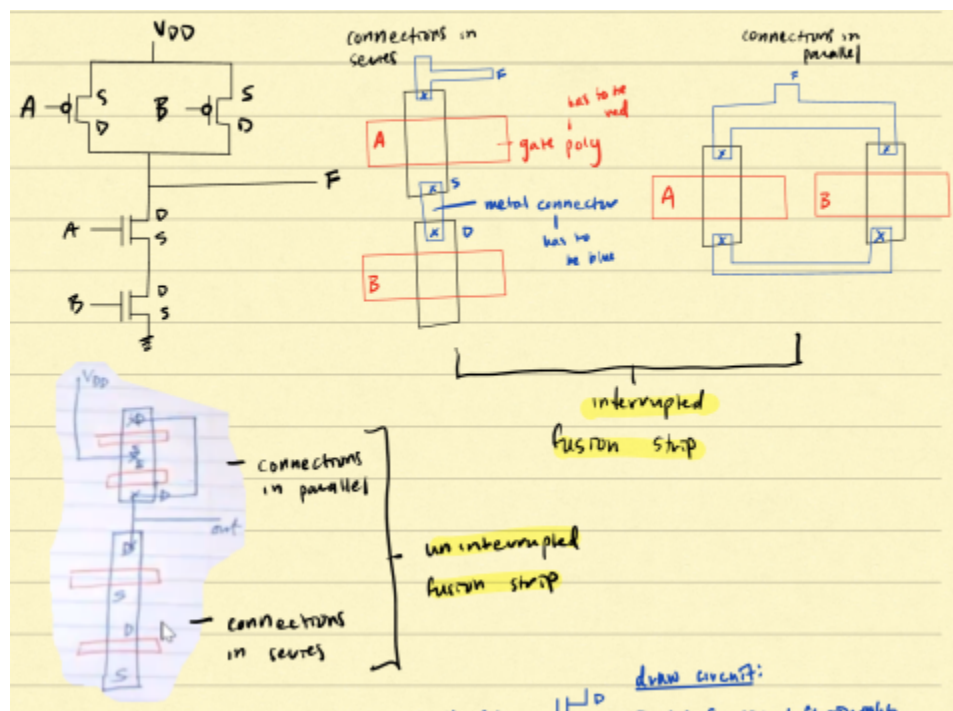 VDD
A
S
D
B
S
D
F
A
D
S
B
D
S
connections in
series
F
A
has to be
red
gate poly
x
x
S
metal connector
has to
be blue
x
D
B
connections in
parallel
F
x
x
A
B
x
x
interrupted
fusion strip
VDD
D
D
connections
in parallel
out
D
S
D
S
connections
in series
uninterrupted
fusion strip
draw circuit:
D